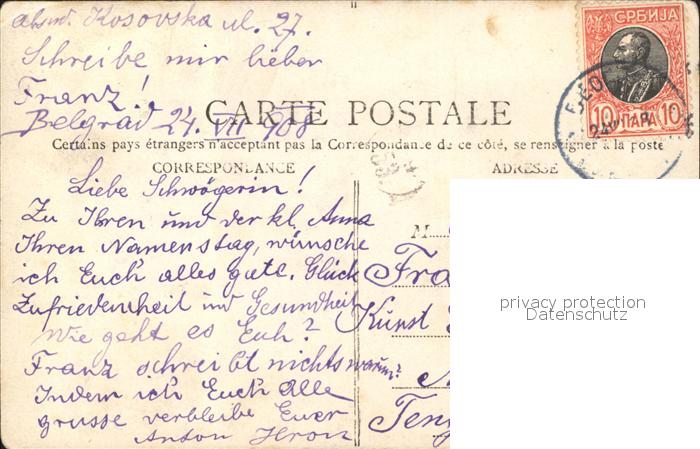 Absnd. Kosovska ul. 27.
Schreibe mir lieber
Franz!
Belgrad 24. VII 908
СРБИЈА
10 ПАРА 10
CARTE POSTALE
Certains pays étrangers n'acceptant pas la Correspondance de ce côté, se renseigner à la poste
CORRESPONDANCE
ADRESSE
Liebe Schwägerin!
Zu Ihren und der kl. Anna
Ihren Namenstag, wünsche
ich Euch alles gute. Glück
Zufriedenheit und Gesundheit
Wie geht es Euh?
Franz schreibt nichts warum?
Indem ich Euch Alle
grüsse verbleibe Euer
Anton Hron
M
Fra
Kunst
Ten
privacy protection
Datenschutz